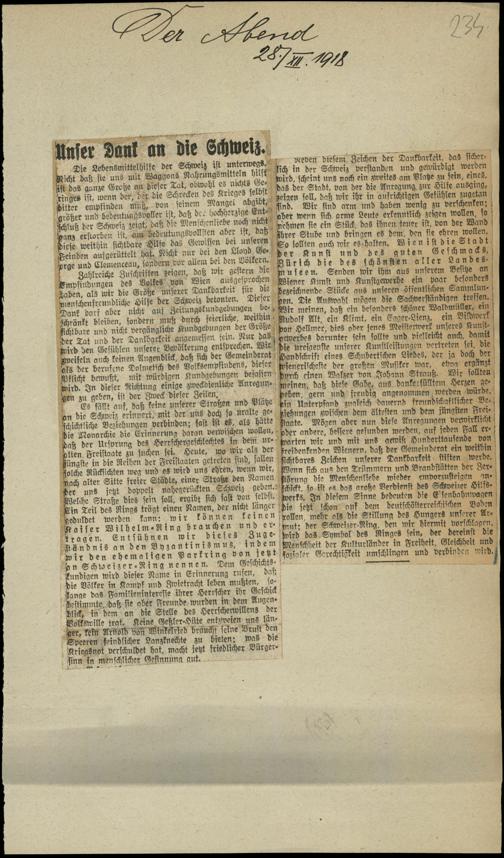 Der Abend
28./XII. 1918
234
Unser Dank an die Schweiz.
Die Lebensmittelhilfe der Schweiz ist unterwegs.
Nicht daß sie uns mit Waggons Nahrungsmitteln hilft
ist das ganz Große an dieser Tat, obwohl es nichts Ge-
ringes ist, wenn der, der die Schrecken des Krieges selbst
bitter empfinden muß, von seinem Mangel abgibt,
größer und bedeutungsvoller ist, daß der hochherzige Ent-
schluß der Schweiz zeigt, daß die Menschenliebe noch nicht
ganz erstorben ist, am bedeutungsvollsten aber ist, daß
diese weithin sichtbare Hilfe das Gewissen bei unseren
Feinden aufgerüttelt hat. Nicht nur bei den Lloyd Ge-
orge und Clemenceau, sondern vor allem bei den Völkern.
Zahlreiche Zuschriften zeigen, daß wir gestern die
Empfindungen des Volkes von Wien ausgesprochen
haben, als wir die Größe unserer Dankbarkeit für die
menschenfreundliche Hilfe der Schweiz betonten. Dieser
Dank darf aber nicht auf Zeitungskundgebungen be-
schränkt bleiben, sondern muß durch feierliche, weithin
sichtbare und nicht vergängliche Kundgebungen der Größe
der Tat und der Dankbarkeit angemessen sein. Nur das
wird den Gefühlen unserer Bevölkerung entsprechen. Wir
zweifeln auch keinen Augenblick, daß sich der Gemeinderat
als der berufene Dolmetsch des Volksempfindens, dieser
Pflicht bewußt, mit würdigen Kundgebungen befassen
wird. In dieser Richtung einige zweckdienliche Anregun-
gen zu geben, ist der Zweck dieser Zeilen.
Es fällt auf, daß keine unserer Straßen und Plätze
an die Schweiz erinnert, mit der uns doch so uralte ge-
schichtliche Beziehungen verbinden; fast ist es, als hätte
die Monarchie die Erinnerung daran verwischen wollen,
daß der Ursprung des Herrschergeschlechtes in dem ur-
alten Freistaate zu suchen sei. Heute, wo wir als der
jüngste in die Reihen der Freistaaten getreten sind, fallen
solche Rücksichten weg und es wird uns ehren, wenn wir,
nach alter Sitte freier Städte, einer Straße den Namen
der uns jetzt doppelt nahegerückten Schweiz geben.
Welche Straße dies sein soll, ergibt sich fast von selbst.
Ein Teil des Rings trägt einen Namen, der nicht länger
geduldet werden kann; wir können keinen
Kaiser Wilhelm-Ring brauchen und er-
tragen. Entsühnen wir dieses Zuge-
ständnis an den Byzantinismus, indem
wir den ehemaligen Parkring von jetzt
an Schweizer-Ring nennen. Dem Geschichts-
kundigen wird dieser Name in Erinnerung rufen, daß
die Völker in Kampf und Zwietracht leben mußten, so-
lange das Familieninteresse ihrer Herrscher ihr Geschick
bestimmte, daß sie aber Freunde wurden in dem Augen-
blick, in dem an die Stelle des Herrscherwillens der
Volkswille trat. Keine Geßler-Hüte entzweien uns län-
ger, kein Arnold von Winkelried braucht seine Brust den
Speeren feindlicher Landsknechte zu bieten; was die
Kriegsnot verschuldet hat, macht jetzt friedlicher Bürger-
sinn in menschlicher Gesinnung gut.
Neben diesem Zeichen der Dankbarkeit, das sicher-
lich in der Schweiz verstanden und gewürdigt werden
wird, scheint uns noch ein zweites am Platze zu sein, eines,
das der Stadt, von der die Anregung zur Hilfe ausging,
zeigen soll, daß wir ihr in aufrichtigen Gefühlen zugetan
sind. Wir sind arm und haben wenig zu verschenken;
aber wenn sich arme Leute erkenntlich zeigen wollen, so
nehmen sie ein Stück, das ihnen teuer ist, von der Wand
ihrer Stube und bringen es dem, den sie ehren wollen.
So sollten auch wir es halten. Wien ist die Stadt
der Kunst und des guten Geschmacks,
Zürich die des schönsten aller Landes-
museen. Senden wir ihm aus unserem Besitze an
Wiener Kunst und Kunstgewerbe ein paar besonders
bezeichnende Stücke aus unseren öffentlichen Sammlun-
gen. Die Auswahl mögen die Sachverständigen treffen.
Wir meinen, daß ein besonders schöner Waldmüller, ein
Rudolf Alt, ein Klimt, ein Egger-Lienz, ein Bildwerk
von Hellmer, dies oder jenes Meisterwerk unseres Kunst-
gewerbes darunter sein sollte und vielleicht auch, damit
die ureigenste unserer Kunstleistungen vertreten sei, die
Handschrift eines Schubertschen Liedes, der ja doch der
wienerischeste der großen Musiker war, etwa ergänzt
durch einen Walzer von Johann Strauß. Wir sollten
meinen, daß diese Gabe, aus dankerfülltem Herzen ge-
geben, gern und freudig angenommen werden würde,
ein Unterpfand zugleich dauernd freundschaftlicher Be-
ziehungen zwischen dem ältesten und dem jüngsten Frei-
staate. Mögen aber nun diese Anregungen verwirklicht
oder andere, bessere gefunden werden, auf jeden Fall er-
warten wir und mit uns gewiß Hunderttausende von
freidenkenden Wienern, daß der Gemeinderat ein weithin
sichtbares Zeichen unserer Dankbarkeit stiften werde.
Wenn sich aus den Trümmern und Brandstätten der Zer-
störung die Menschenliebe wieder emporzusteigen an-
schickt, so ist es das große Verdienst des Schweizer Hilfs-
werks. In diesem Sinne bedeuten die Eisenbahnwagen
die jetzt schon auf dem deutschösterreichischen Boden
rollen, mehr als die Stillung des Hungers unserer Ar-
mut; der Schweizer-Ring, den wir hiermit vorschlagen,
wird das Symbol des Ringes sein, der dereinst die
Menschheit der Kulturländer in Freiheit, Gleichheit und
sozialer Gerechtigkeit umschlingen und verbinden wird.